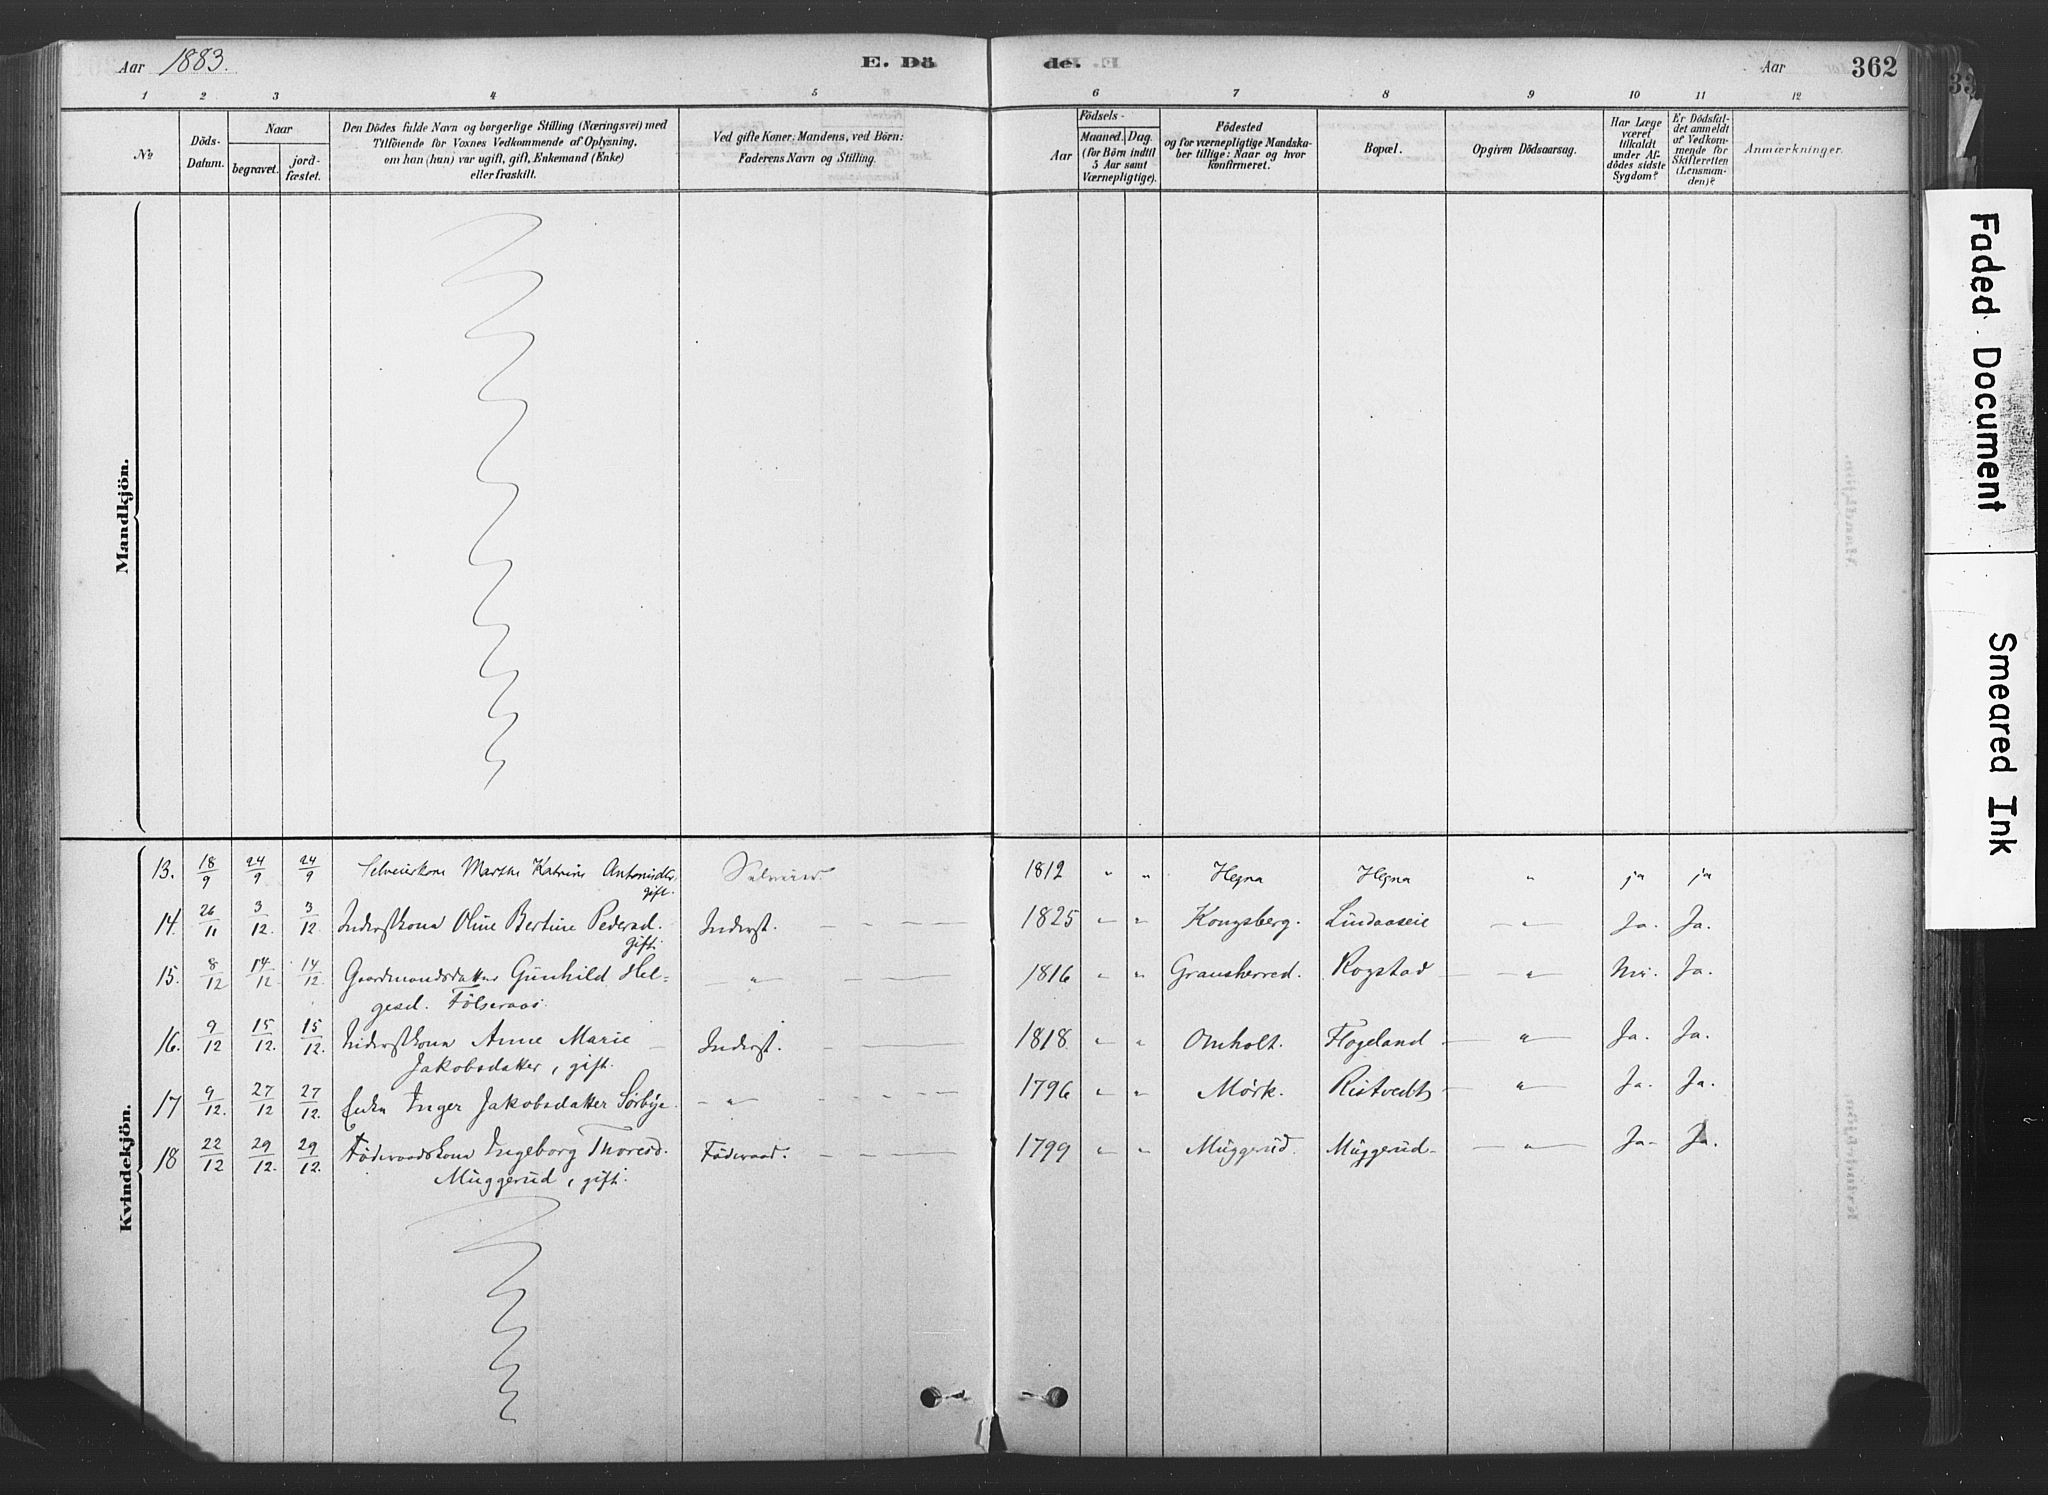 Aar 1883.
E. Dö
de.
Aar
362
1 2 3 4 5 6 7 8 9 10 11 12
No
Döds-
Datum.
Naar
begravet.
jord-
fæstet.
Den Dödes fulde Navn og borgerlige Stilling (Næringsvei) med
Tilföiende for Voxnes Vedkommende af Oplysning,
om han (hun) var ugift, gift, Enkemand (Enke)
eller fraskilt.
Ved gifte Koner: Mandens, ved Börn:
Faderens Navn og Stilling.
Födsels-
Aar
Maaned. Dag.
(for Börn indtil
5 Aar samt
Værnepligtige).
Födested
og for værnepligtige Mandska-
ber tillige: Naar og hvor
konfirmeret.
Bopæl.
Opgiven Dödsaarsag.
Har Læge
været
tilkaldt
under Af-
dödes sidste
Sygdom?
Er Dödsfal-
det anmeldt
af Vedkom-
mende for
Skifteretten
(Lensman-
den)?
Anmærkninger.
Mandkjön.
Kvindekjön.
13. 18/9 24/9 24/9 Selveierkone Marthe Katrine Antonidtr. Selveier. 1812 " " Hegna Hegna " ja ja
gift.
14. 26/11 3/12. 3/12 Inderstkona Oline Bertine Pedersd. Inderst. — - — — 1825 " " Kongsberg. Lindaaseie — " — Ja. Ja.
gift.
15. 8/12 14/12 14/12. Gaardmandsdatter Gunhild Hel- — " — — — 1816 " " Gransherred. Rogstad — " — Nei. Ja.
gesd. Fölseraas.
16. 9/12 15/12. 15/12. Inderstkona Anne Marie — Inderst. - — — 1818 " " Omholt. Flogeland — " — Ja. Ja.
Jakobsdatter, gift.
17 9/12. 27/12 27/12. Enke Inger Jakobsdatter Sørbye. — " — - - — — 1796 " " Mørk. Ristvedt — " — Ja. Ja.
18 22/12 29/12. 29/12. Föderaadskona Ingeborg Thoresd. Föderaad. - — — 1799 " " Muggerud. Muggerud — " — Ja- Ja.
Muggerud, gift.
Faded Document
Smeared Ink